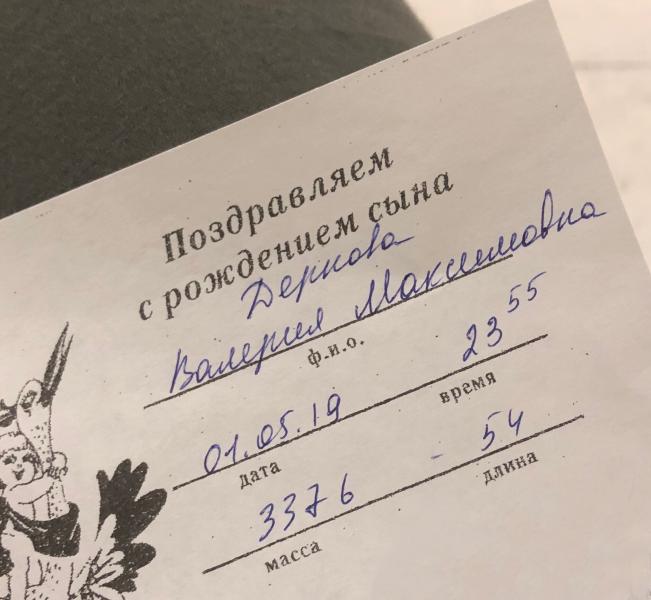 Поздравляем
с рождением сына
Дернова
Валерия Максимовна
ф.и.о.
01.05.19 23 55
дата время
3376 - 54
масса длина